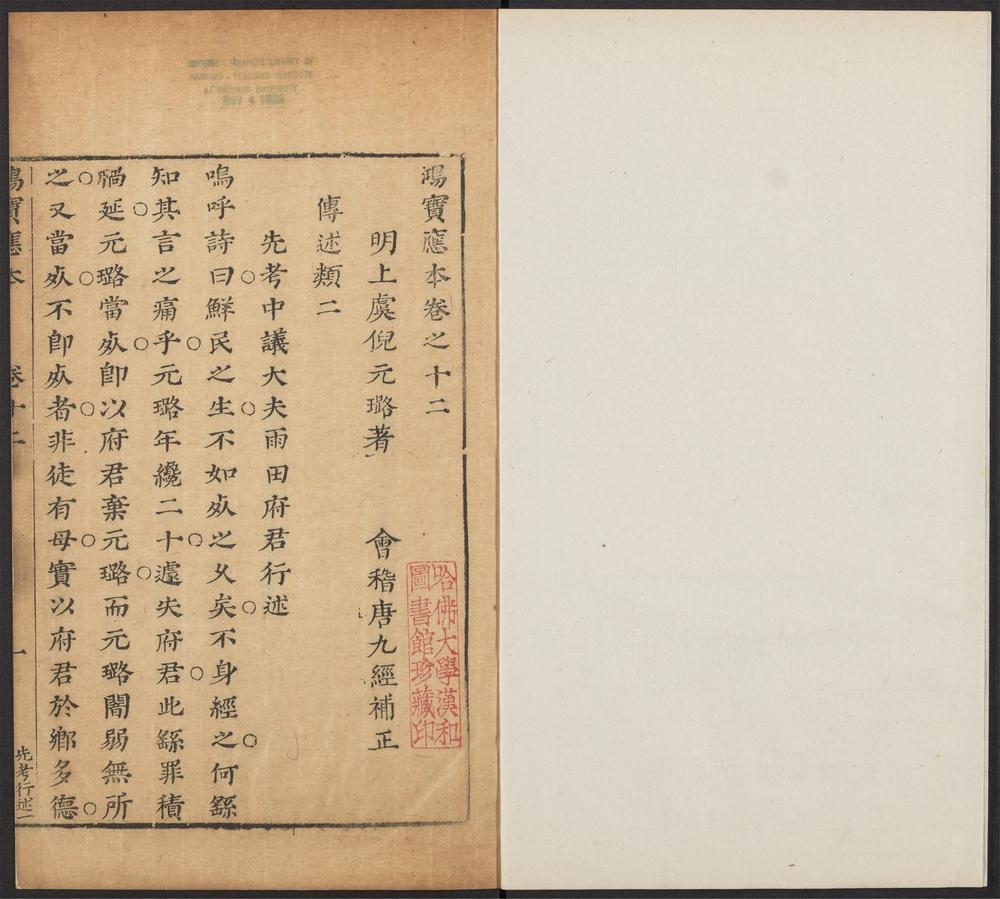 鴻寶應本卷之十二
明上虞倪元璐著　會稽唐九經補正
傳述類二
先考中議大夫雨田府君行述
嗚呼詩曰鮮民之生不如死之乆矣不身經之何繇
知其言之痛乎元璐年纔二十遽失府君此繇罪積
禍延元璐當死卽以府君棄元璐而元璐闇弱無所
之又當死不卽死者非徒有母實以府君於鄉多德
鴻寶應本　卷十二　一　先考行述一
哈佛大學漢和
圖書館珍藏印
JAPANESE LIBRARY OF
HARVARD-YENCHING INSTITUTE
AT HARVARD UNIVERSITY